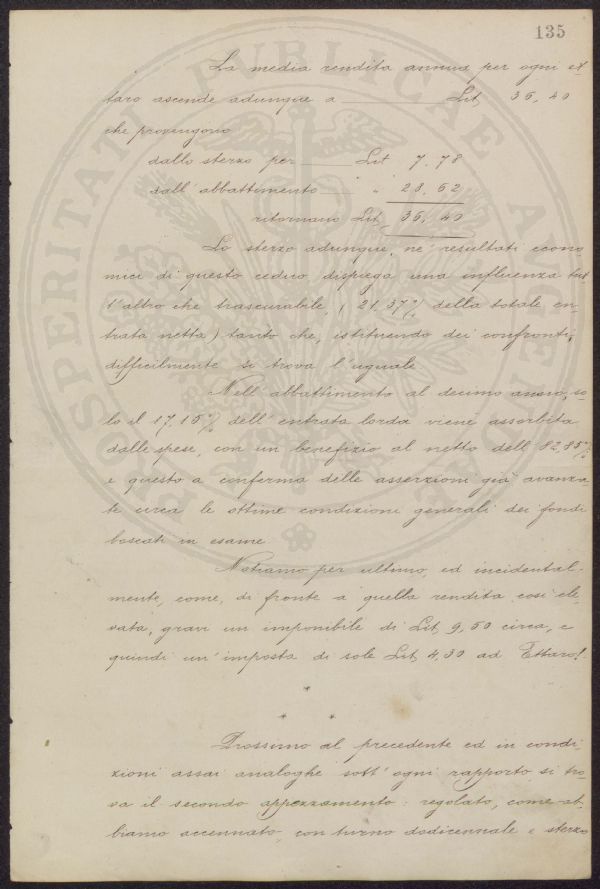 135
PROSPERITATI PUBLICAE AUGENDAE
La media rendita annua per ogni et-
taro ascende adunque a Lit 36,40
che provengono
dallo sterzo per Lit 7,78
dall'abbattimento " " 28,62
ritornano Lit. 36,40
Lo sterzo adunque, ne' resultati econo-
mici di questo ceduo dispiega una influenza tut-
t'altro che trascurabile, (21,37% della totale en-
trata netta) tanto che, istituendo dei confronti,
difficilmente si trova l'uguale
Nell'abbattimento al decimo anno, so-
lo il 17,15% dell'entrata lorda viene assorbita
dalle spese, con un benefizio al netto dell'82,85%
e questo a conferma delle asserzioni già avanza-
te circa le ottime condizioni generali dei fondi
boscati in esame
Notiamo per ultimo, ed incidental-
mente, come, di fronte a quella rendita così ele-
vata, gravi un imponibile di Lit. 9,50 circa, e
quindi un'imposta di sole Lit 4,30 ad Ettaro!
*
* *
Prossimo al precedente ed in condi-
zioni assai analoghe sott'ogni rapporto, si tro-
va il secondo appezzamento: regolato, come ab-
biamo accennato, con turno dodicennale e sterzo